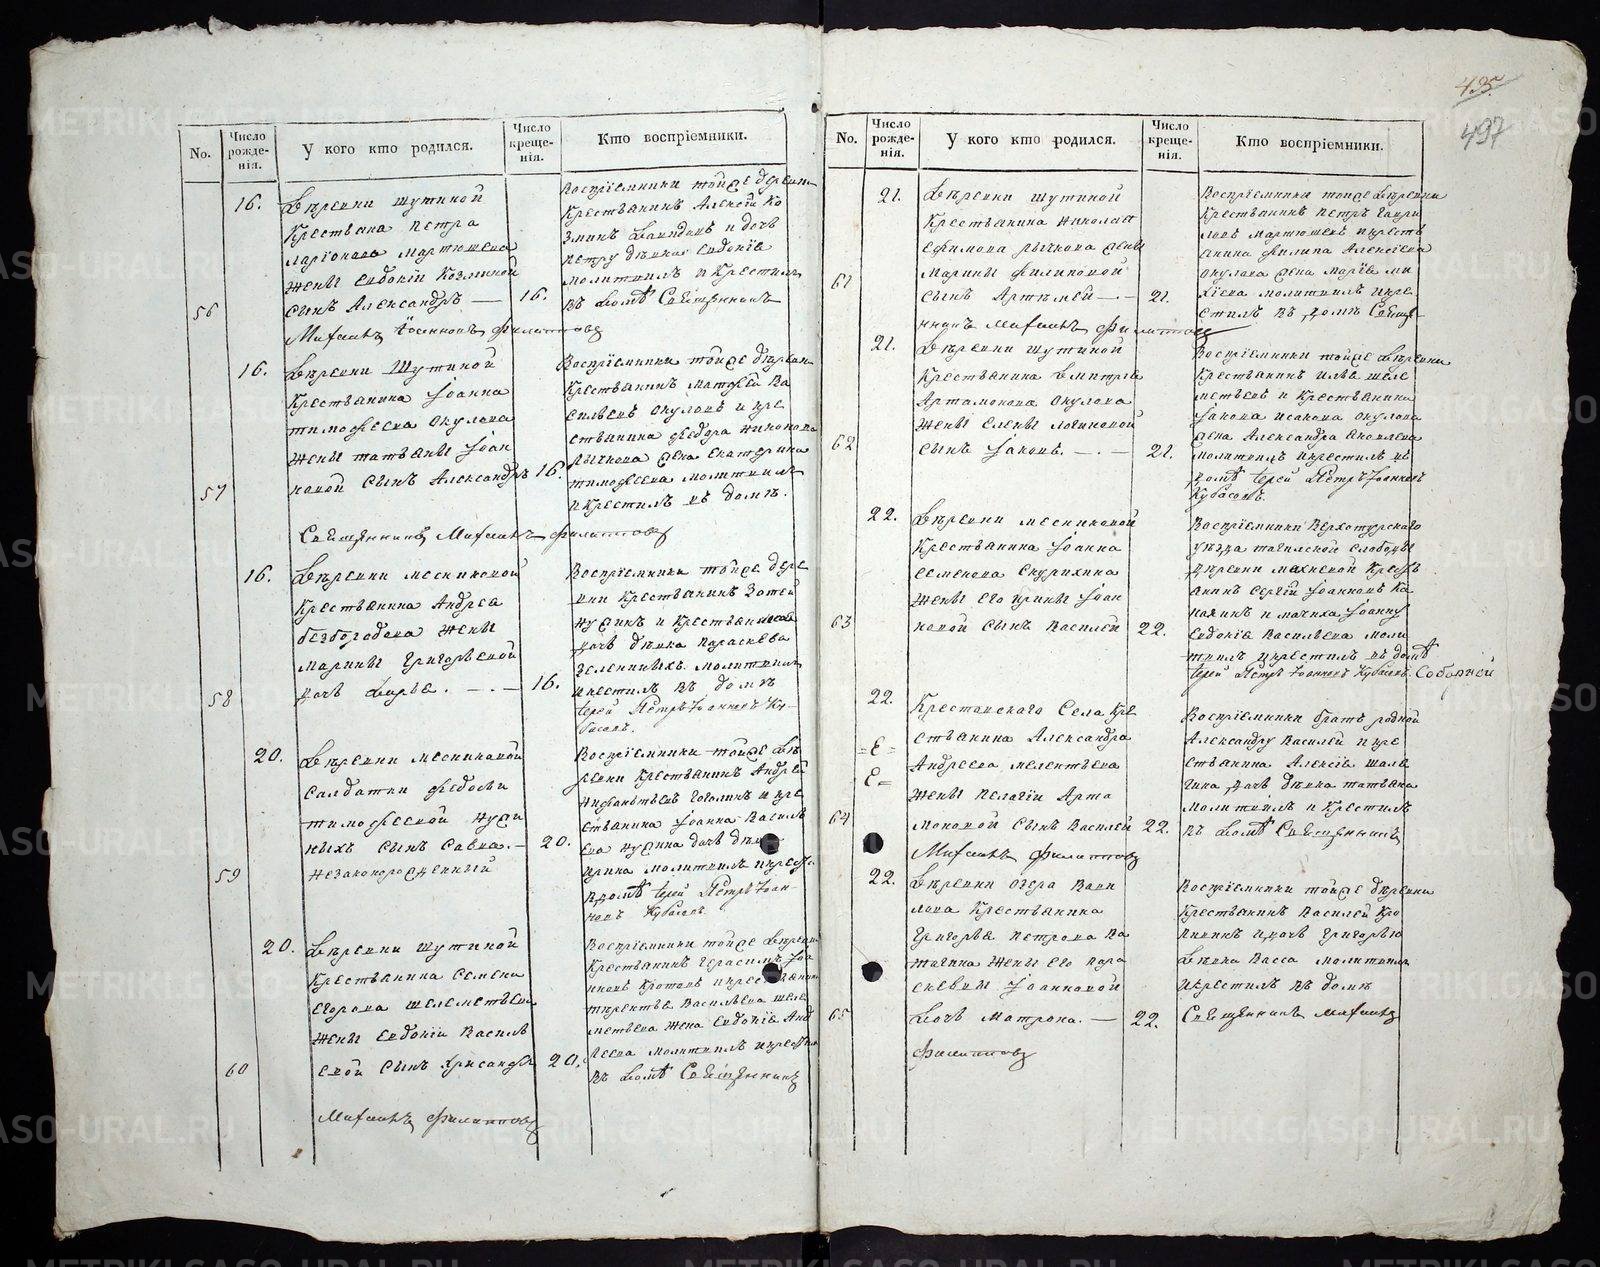 435.
497
No.
Число рожде- нія.
У кого кто родился.
Число креще- нія.
Кто воспріемники.
16. Деревни Шутиной
Крестьяна Петра
Марïонова Мартюшева
жены Евдокіи Козминой
56 сынъ Александръ — 16.
Воспріемники тойже деревни
Крестьянинъ Алексѣй Ко
зминъ Давидовъ и дочь
Петру дѣвка Евдокіа
молитвилъ и крестилъ
въ домѣ Священникъ
Михаилъ Филипповъ
16. Деревни Шутиной
Крестьянина Іоанна
Тимофеева Окулова
жены Татьяны Іоан
57 новой сынъ Александръ 16.
Воспріемники тойже деревни
Крестьянинъ Матфей Ва
сильевъ Окуловъ и кре
стьянина Федора Никонова
Лычкова жена Екатерина
Тимофеева молитвилъ
и крестилъ въ домѣ.
Священникъ Михаилъ Филипповъ
16. Деревни Месниковой
Крестьянина Андрея
Безбородова жены
Марины Григорьевой
58 дочь Дарья. — 16.
Воспріемники тойже дере
вни Крестьянинъ Зотей
дочь дѣвка Параскева
Зеленниыхъ молитвилъ
и крестилъ въ домѣ
Іерей Петръ Іоанновъ Ку-
басовъ.
20. Деревни Месниковой
Салдатки Федосьи
Тимофеевой Нуси
ныхъ сынъ Савва. — 20.
59 незаконорожденный
Воспріемники тойже де
ревни Крестьянинъ Андрей
Ниѳантьевъ Гоголинъ и кре
стьянина Іоанна Василь
ева Нусина дочь дѣвка
Ирина молитвилъ и крест.
в домѣ Іерей Петръ Іоан-
новъ Кубасовъ.
20. Деревни Шутиной
Крестьянина Семена
Егорова Шелеметьева
жены Евдокіи Василь
60 евой сынъ Хрисанфъ 20.
Воспріемники тойже деревни
Крестьянинъ Герасимъ Іоа
нновъ Кротовъ и крестьянина
Терентья Васильева Шеле
метьева жена Евдокіа Анд
реева молитвилъ и крестилъ
въ домѣ Священникъ
Михаилъ Филипповъ
No.
Число рожде- нія.
У кого кто родился.
Число креще- нія.
Кто воспріемники.
21. Деревни Шутиной
Крестьянина Николая
Ефимова Лычкова жены
Марины Филиповой
61 сынъ Артемей — 21.
Воспріемники тойже деревни
Крестьянинъ Петръ Гаври
ловъ Мартюшевъ и кресть
янина Филипа Алексѣева
Окулова жена Маріа Ми
хѣева молитвилъ и кре
стилъ въ домѣ Свяще-
нникъ Михаилъ Филипповъ
21. Деревни Шутиной
Крестьянина Дмитріа
Артамонова Окулова
жены Елены Логиновой
62 сынъ Іаковъ. — 21.
Воспріемники тойже деревни
Крестьянинъ Илья Шеле
метьевъ и Крестьянина
Іакова Исакова Окулова
жена Александра Яковлева
молитвилъ и крестилъ въ
домѣ Іерей Петръ Іоанновъ
Кубасовъ.
22. Деревни Месниковой
Крестьянина Іоанна
Семенова Скурихина
жены его Ирины Іоан
63 новой сынъ Василей 22.
Воспріемники Верхотурского
уѣзда Тагилской слободы
деревни Махневой Кресть
янинъ Сергій Іоанновъ Ка
Евдокіа Васильева моли
твилъ и крестилъ въ домѣ
Іерей Петръ Іоанновъ Кубасовъ. Соборной
22. Крестанскаго Села Кре
стьянина Александра
Андреева Мелентьева
жены Пелагіи Арта
64 моновой сынъ Василей 22.
Воспріемники братъ родной
Александру Василей и кре
стьянина Алексѣа Шала
гина дочь дѣвка Татьяна
молитвилъ и крестилъ
въ домѣ Священникъ
Михаилъ Филипповъ
22. Деревни Озера Вави
лова Крестьянина
Григорья Петрова Ва
жены его Пара
скевіи Іоанновой
65 дочь Матрона. — 22.
Воспріемники тойже деревни
Крестьянинъ Василей Кро
и дочь Григорью
дѣвка Васса молитвилъ
и крестилъ въ домѣ
Священникъ Михаилъ
Филипповъ
METRIKI.GASO-URAL.RU